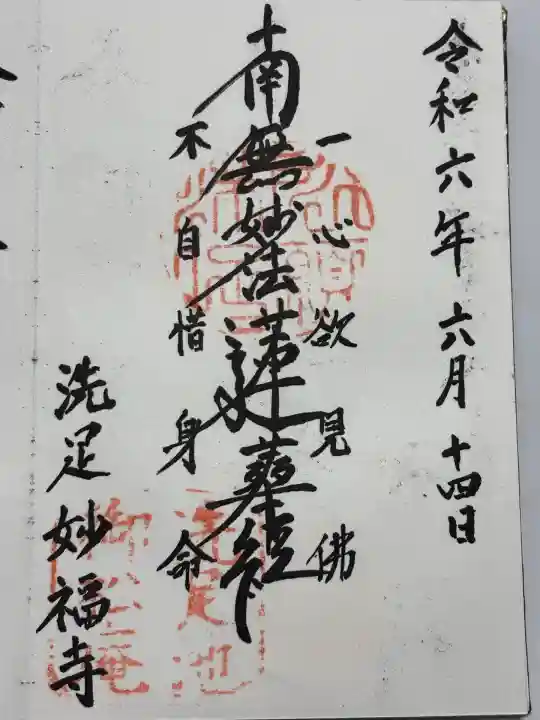 令和六年六月十四日
一心欲見佛
南無妙法蓮華経
不自惜身命
洗足妙福寺
洗足池
御松庵